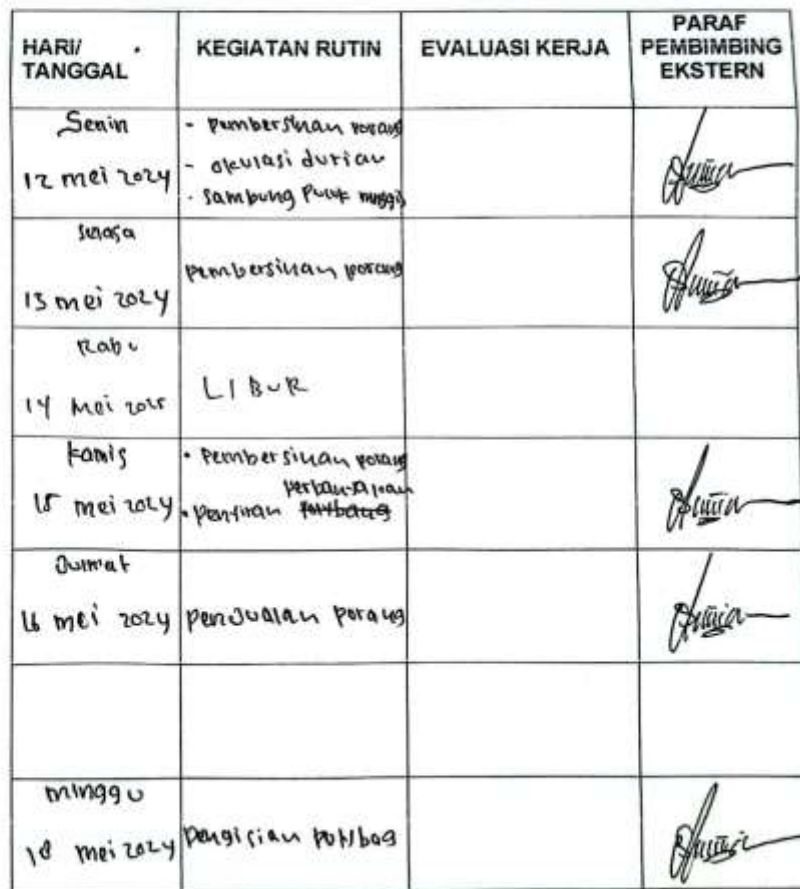 HARI/
TANGGAL
KEGIATAN RUTIN
EVALUASI KERJA
PARAF
PEMBIMBING
EKSTERN
Senin
12 mei 2024
- pembersihan porang
- okulasi durian
- sambung Pucuk
selasa
13 mei 2024
pembersihan porang
Rabu
14 Mei
LIBUR
kamis
15 mei 2024
• Pembersihan porang
•
Jum'at
16 mei 2024
penjualan porang
minggu
18 mei 2024
pengisian polybag